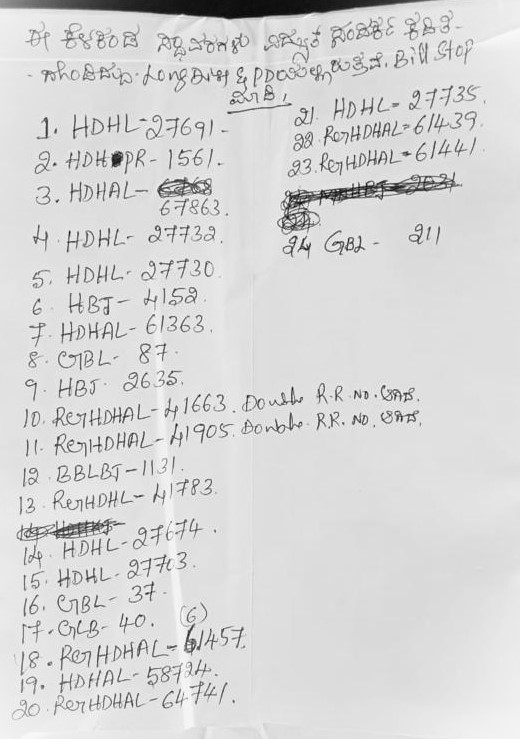 ಈ ಕೆಳಕಂಡ ವಿದ್ಯುತ್ ಕಡಿತ-
Bill Stop
ಮಾಡಿ.
1. HDHL-27691-
2. HDHPR-1561.
3. HDHAL-
67863.
4. HDHL- 27732.
5. HDHL- 27730.
6. HBJ- 4152.
7. HDHAL- 61363.
8. GBL- 87.
9. HBJ- 2635.
10. RGHDHAL-41663. Double R.R.NO. ಆಗಿದೆ.
11. RGHDHAL-41905. Double. RR. NO. ಆಗಿದೆ.
12 BBLBJ-1131.
13. RGHDHL-41783.
14. HDHL-27674.
15. HDHL-27703.
16. GBL- 37.
17. GLB- 40.
(6)
18. RGHDHAL-61457.
19. HDHAL-58724.
20. RGHDHAL-64741.
21. HDHL= 27735.
22. RGHDHAL=61439.
23. RGHDHAL-61441.
24 GBL- 211